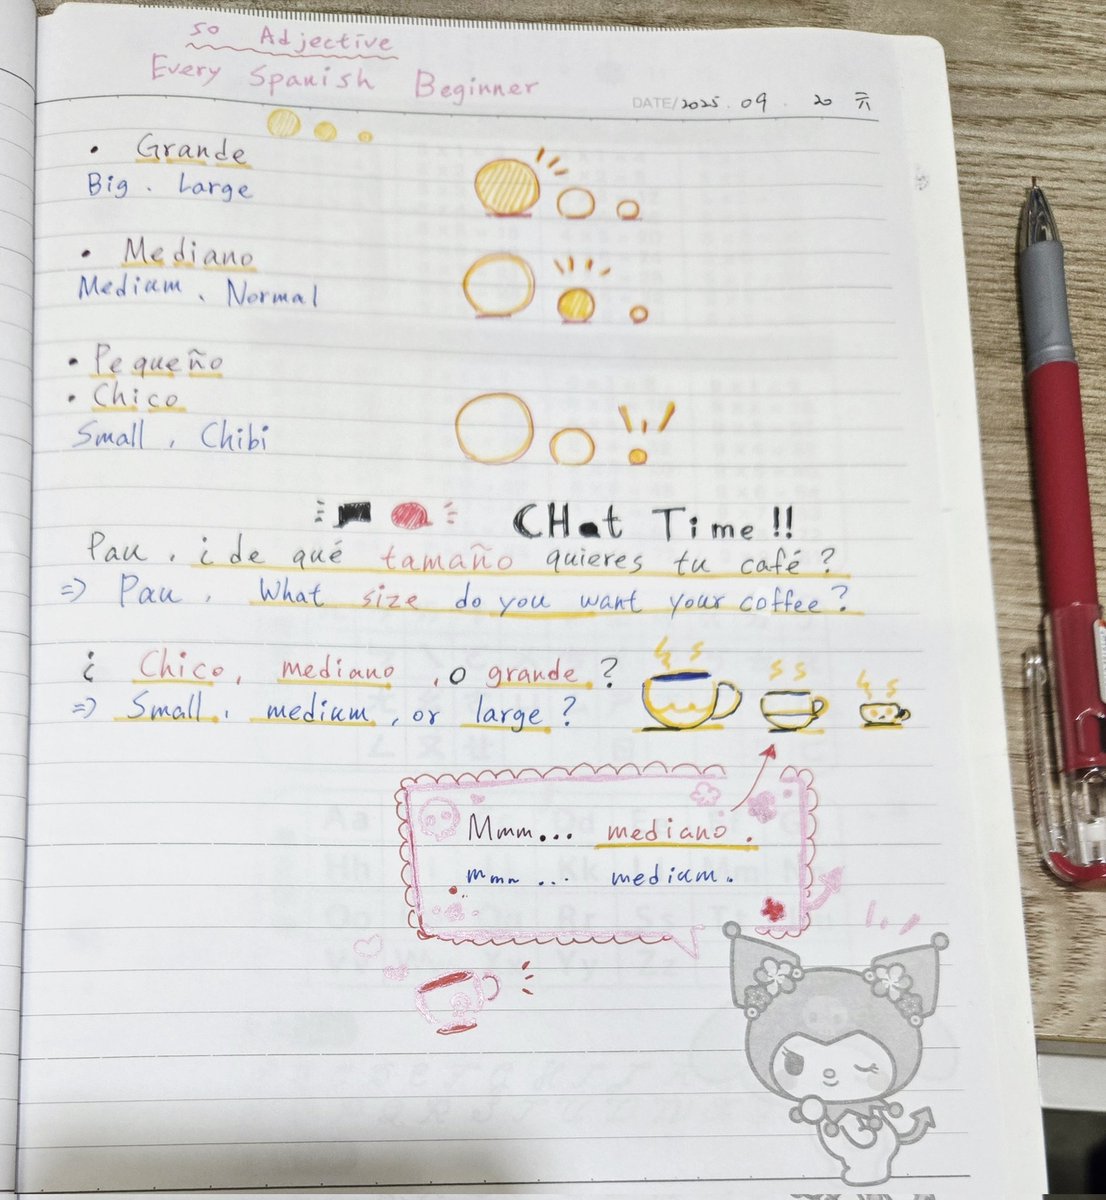 50 Adjective
Every Spanish Beginner
DATE/2025.09.20 六
• Grande
Big、Large
• Mediano
Medium、Normal
• Pequeño
• Chico
Small, Chibi
CHat Time!!
Pau, ¿de qué tamaño quieres tu café?
=> Pau, What size do you want your coffee?
¿Chico, mediano, o grande?
=> Small, medium, or large?
Mmm... mediano.
mmm ... medium.